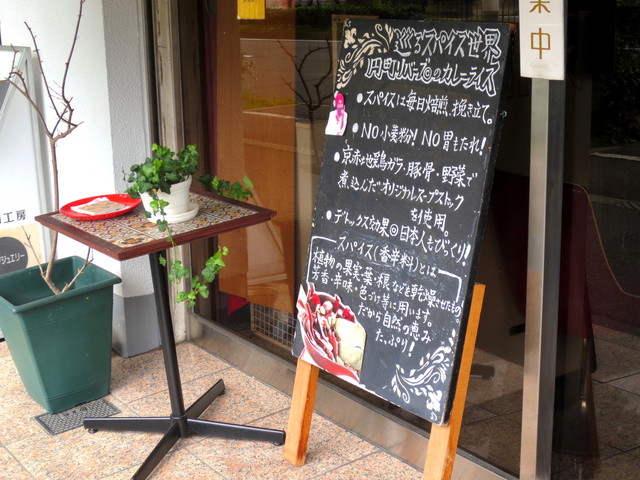 巡るスパイス世界
円町リバーブのカレーライス
・スパイスは毎日焙煎、挽き立て。
・NO小麦粉! NO胃もたれ!
・京赤地鶏ガラ・豚骨・野菜で
煮込んだオリジナルスープストック
を使用。
・デトックス効果◎日本人もびっくり!
スパイス(香辛料)とは
植物の果実・葉・根などを乾燥させたもの
芳香・辛味・色づけ等に用います。
だから自然の恵み
たっぷり!
業中
工房
ジュエリー